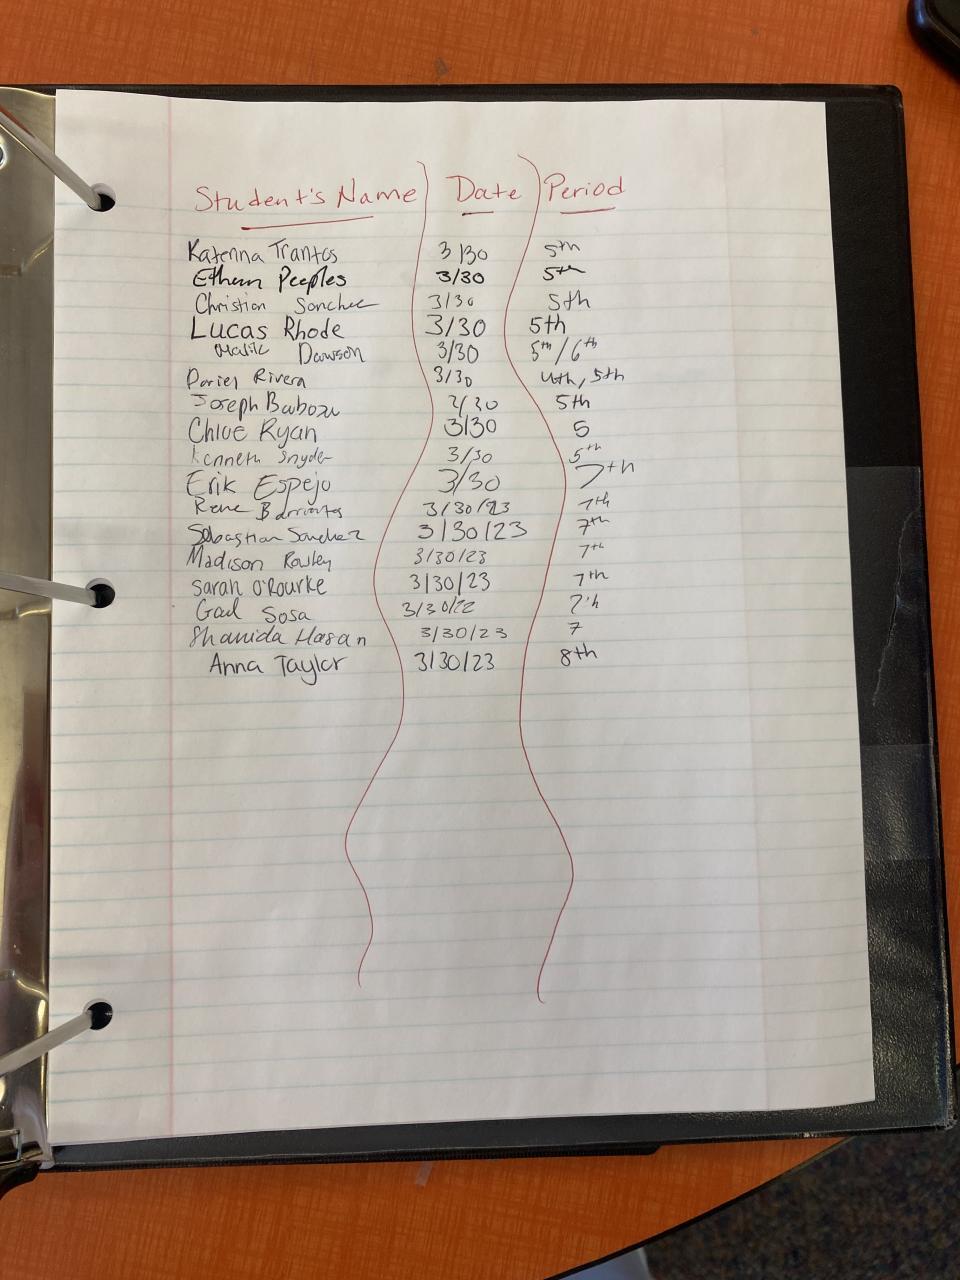 Student's Name Date Period
Katerina Trantos 3/30 5th
Ethan Peeples 3/30 5th
Christian Sanchez 3/30 5th
Lucas Rhode 3/30 5th
Malik Dawson 3/30 5th/6th
Dariel Rivera 3/30 4th, 5th
Joseph 3/30 5th
Chloe Ryan 3/30 5
Kenneth Snyder 3/30 5th
Erik Espejo 3/30 7th
Rene Barrientos 3/30/23 7th
Sebastian Sanchez 3/30/23 7th
Madison Rowley 3/30/23 7th
Sarah O'Rourke 3/30/23 7th
Gael Sosa 3/30/22 7th
Shamida Hasan 3/30/23 7
Anna Taylor 3/30/23 8th